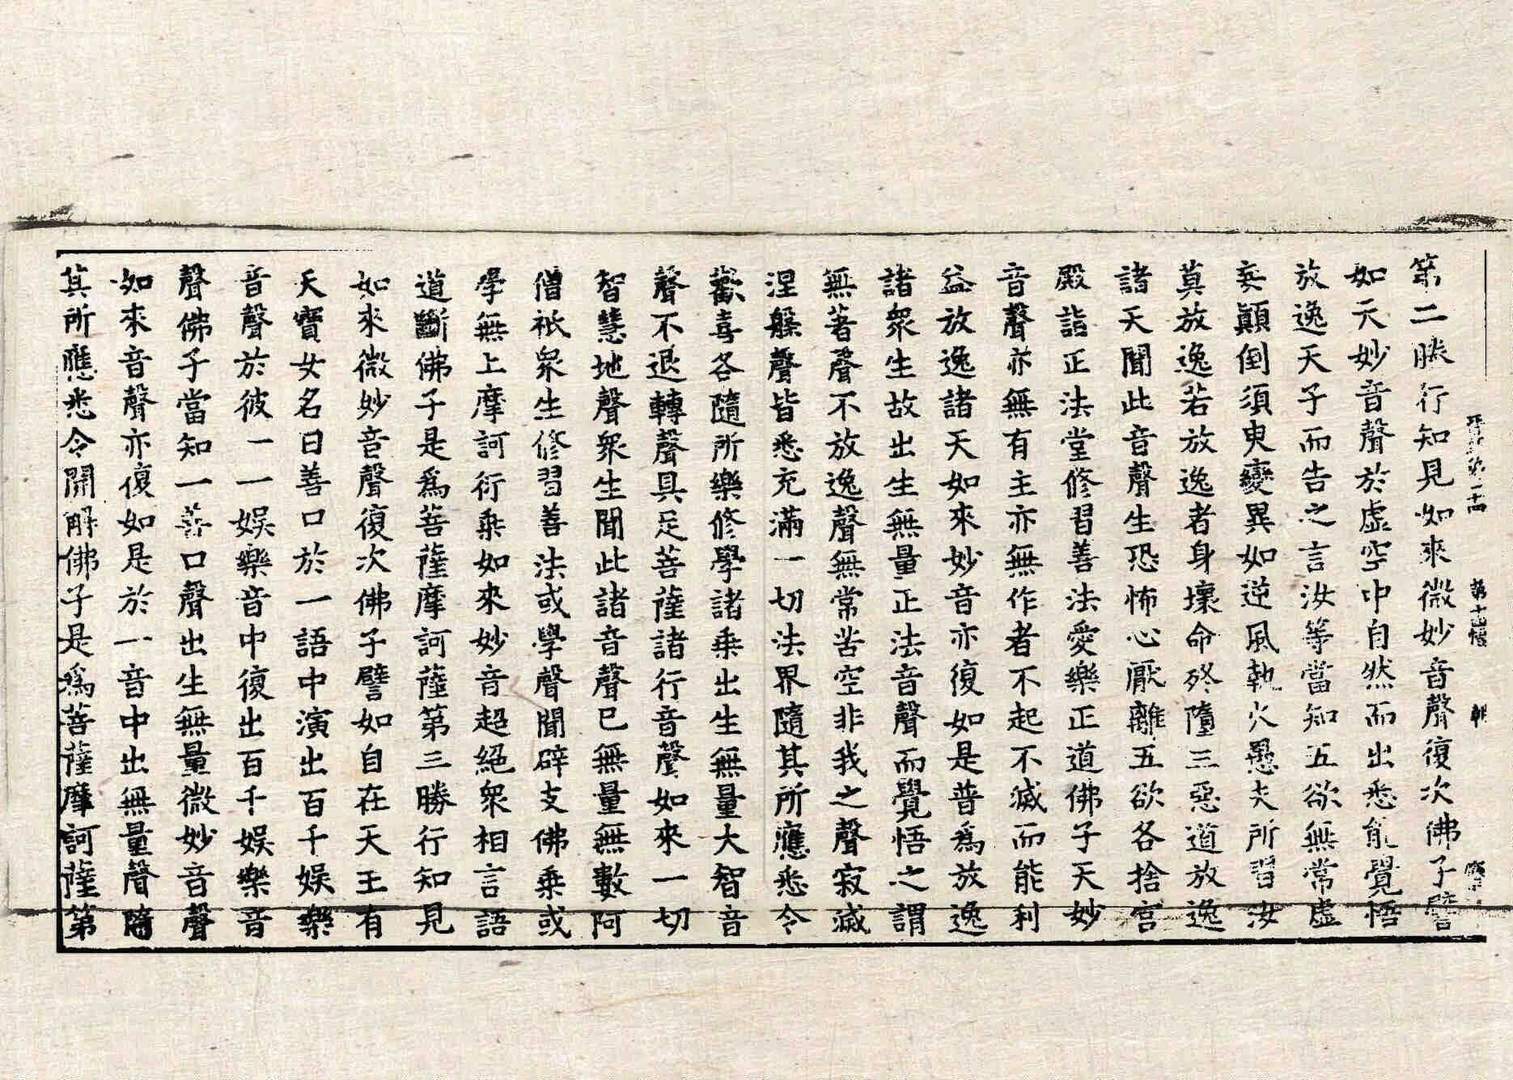 第二勝行知見如來微妙音聲復次佛子譬
如天妙音聲於虛空中自然而出悉能覺悟
放逸天子而告之言汝等當知五欲無常虛
妄顛倒須臾變異如逆風執火愚夫所習汝
莫放逸若放逸者身壞命終墮三惡道放逸
諸天聞此音聲生恐怖心厭離五欲各捨宮
殿詣正法堂修習善法愛樂正道佛子天妙
音聲亦無有主亦無作者不起不滅而能利
益放逸諸天如來妙音亦復如是普為放逸
諸眾生故出生無量正法音聲而覺悟之謂
無著聲不放逸聲無常苦空非我之聲寂滅
涅槃聲皆悉充滿一切法界隨其所應悉令
歡喜各隨所樂修學諸乘出生無量大智音
聲不退轉聲具足菩薩諸行音聲如來一切
智慧地聲眾生聞此諸音聲已無量無數阿
僧祇眾生修習善法或學聲聞辟支佛乘或
學無上摩訶衍乘如來妙音超絕眾相言語
道斷佛子是為菩薩摩訶薩第三勝行知見
如來微妙音聲復次佛子譬如自在天王有
天寶女名曰善口於一語中演出百千娛樂
音聲於彼一一娛樂音中復出百千娛樂音
聲佛子當知一善口聲出生無量微妙音聲
如來音聲亦復如是於一音中出無量聲隨
其所應悉令開解佛子是為菩薩摩訶薩第